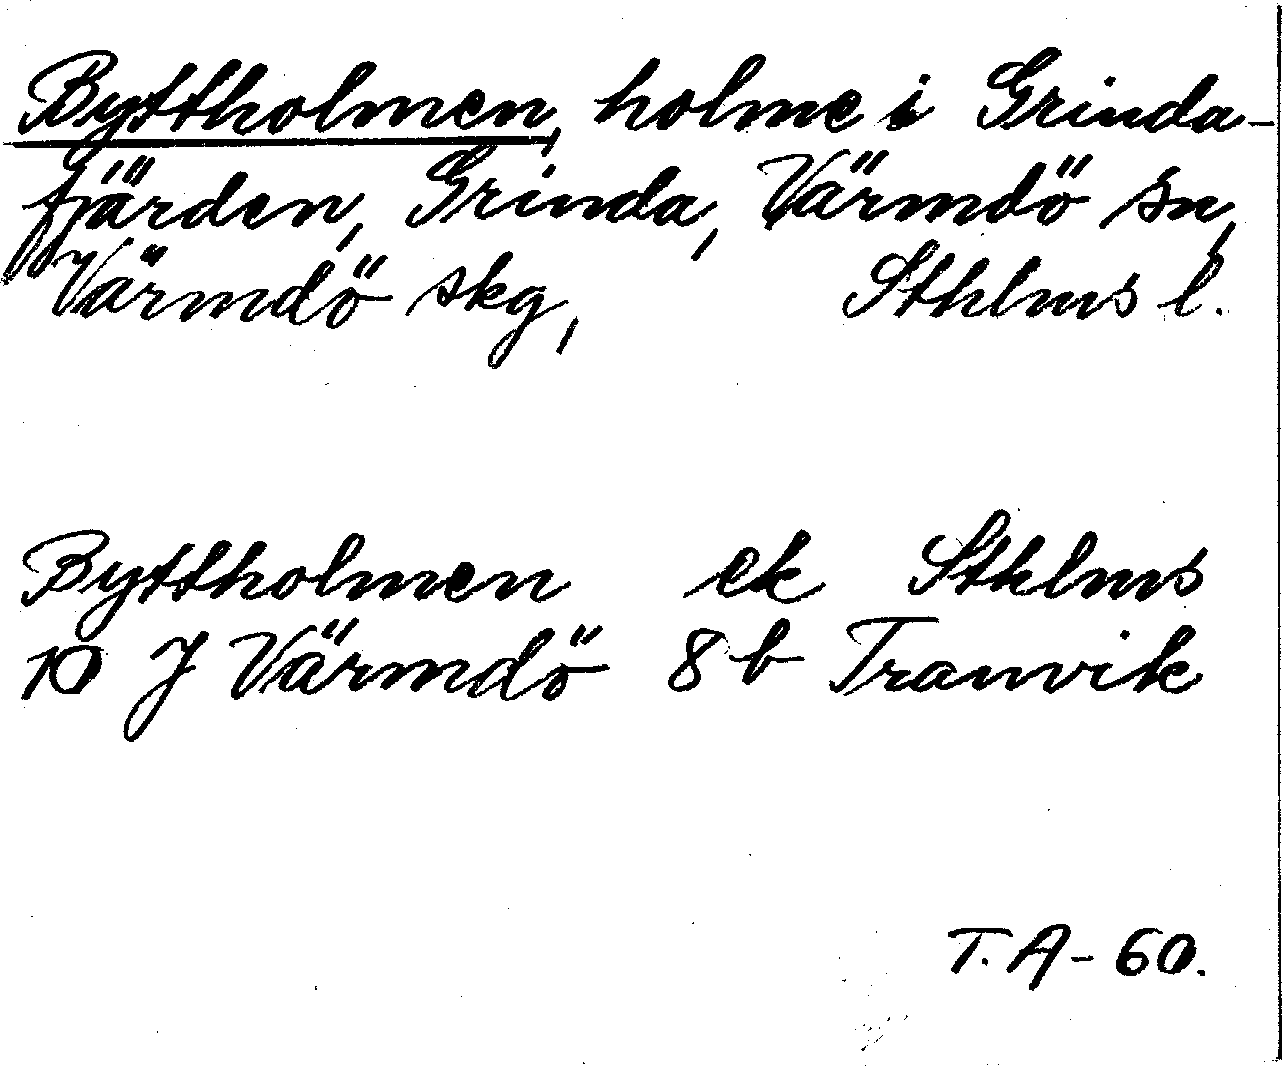 Byttholmen, holme i Grinda-
fjärden, Grinda, Värmdö sn,
Värmdö skg, Sthlms l.
Byttholmen ek Sthlms
10 J Värmdö 8 b Tranvik
T. A - 60.